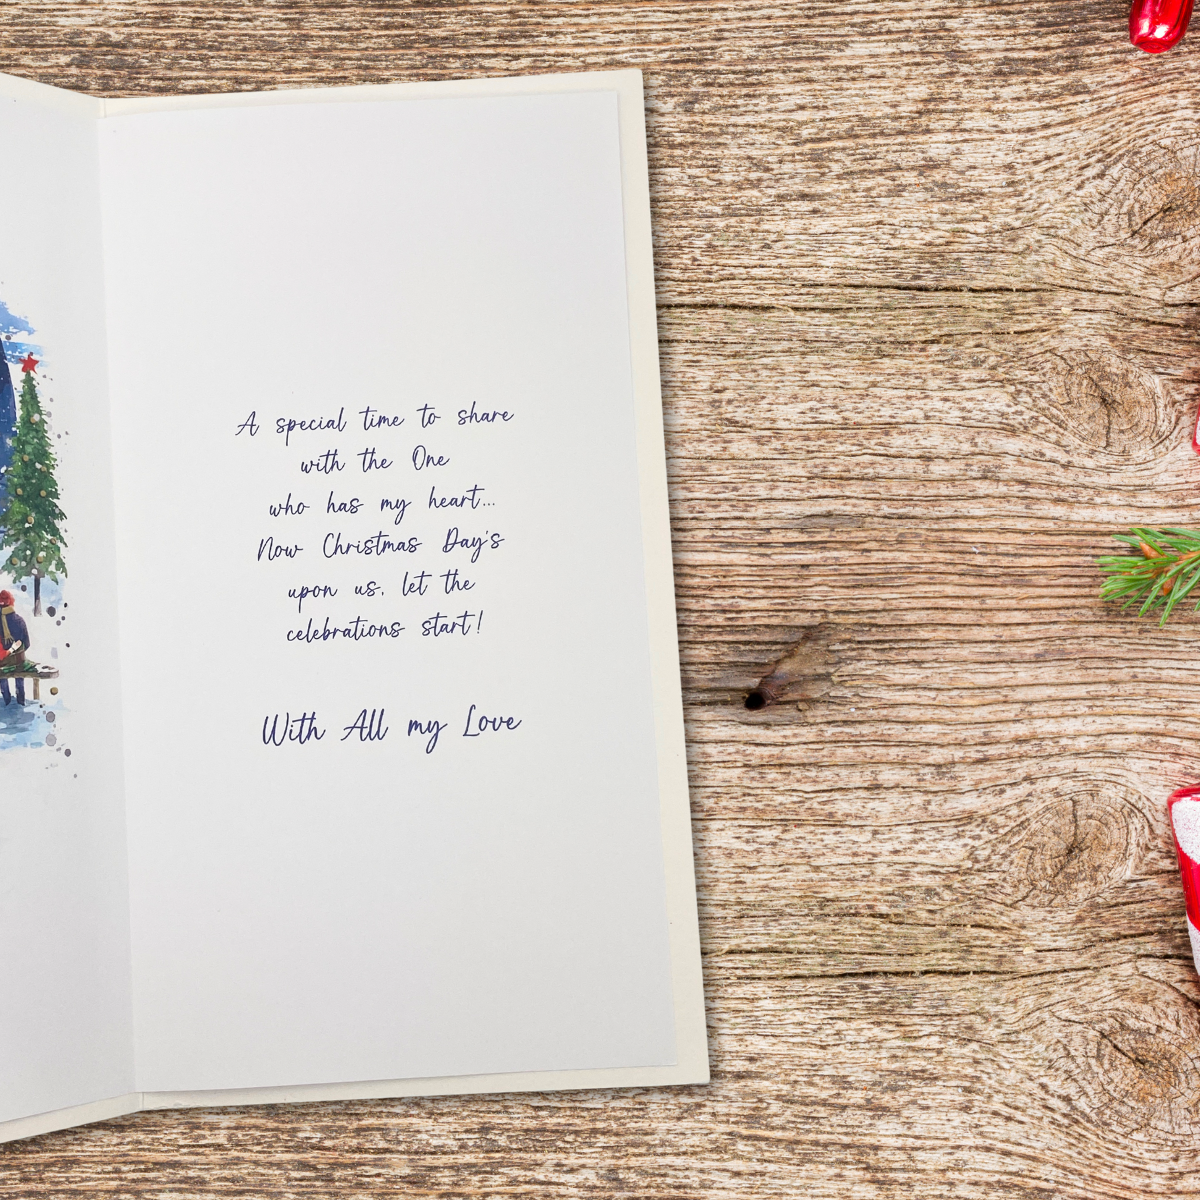 A special time to share
with the One
who has my heart...
Now Christmas Day's
upon us, let the
celebrations start!
With All my Love